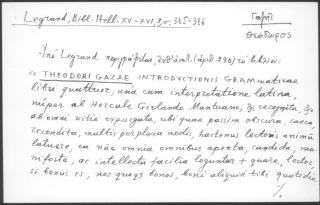 Legrand, Bibl. Hell. XV-XVI, 3, σ. 315-316
Γαζῆς
Θεόδωρος
Ὑπὸ Legrand περιγράφεται, ἐνθ' ἀνωτ. (ἀριθ. 290) τὸ βιβλίον:
« THEODORI GAZAE INTRODUCTIONIS GRAMmaticae
libri quattuor, una cum interpretatione latina,
nuper ab Hercale Girlando Mantuano, & recognita, &
ab omni uitio expurgata, ubi quae passim obscura, caeca,
recondita, multis perplexa nodis, hactenus lectoris animũ
latuere, ea nũc omnia omnibus aperta, candida, ma-
nifesta, ac intellectu facilia leguntur + quare, lector
si bonus es, nos quoqs bonos, boni aliquid tibi quotidie
./.